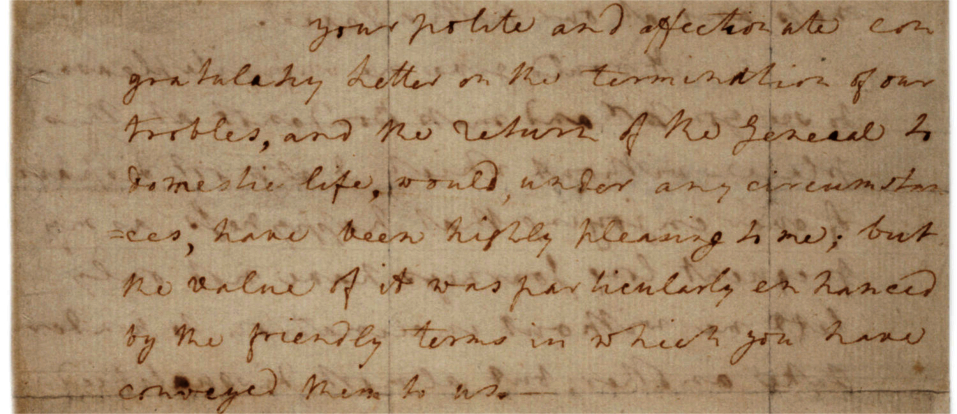 your polite and affectionate con
gratulatry Letter on the termination of our
trobles, and the return of the General to
domestic life, would, under any circumstan
=ces, have been highly pleasing to me; but
the value of it was particularly enhanced
by the friendly terms in which you have
conveyed them to us.—